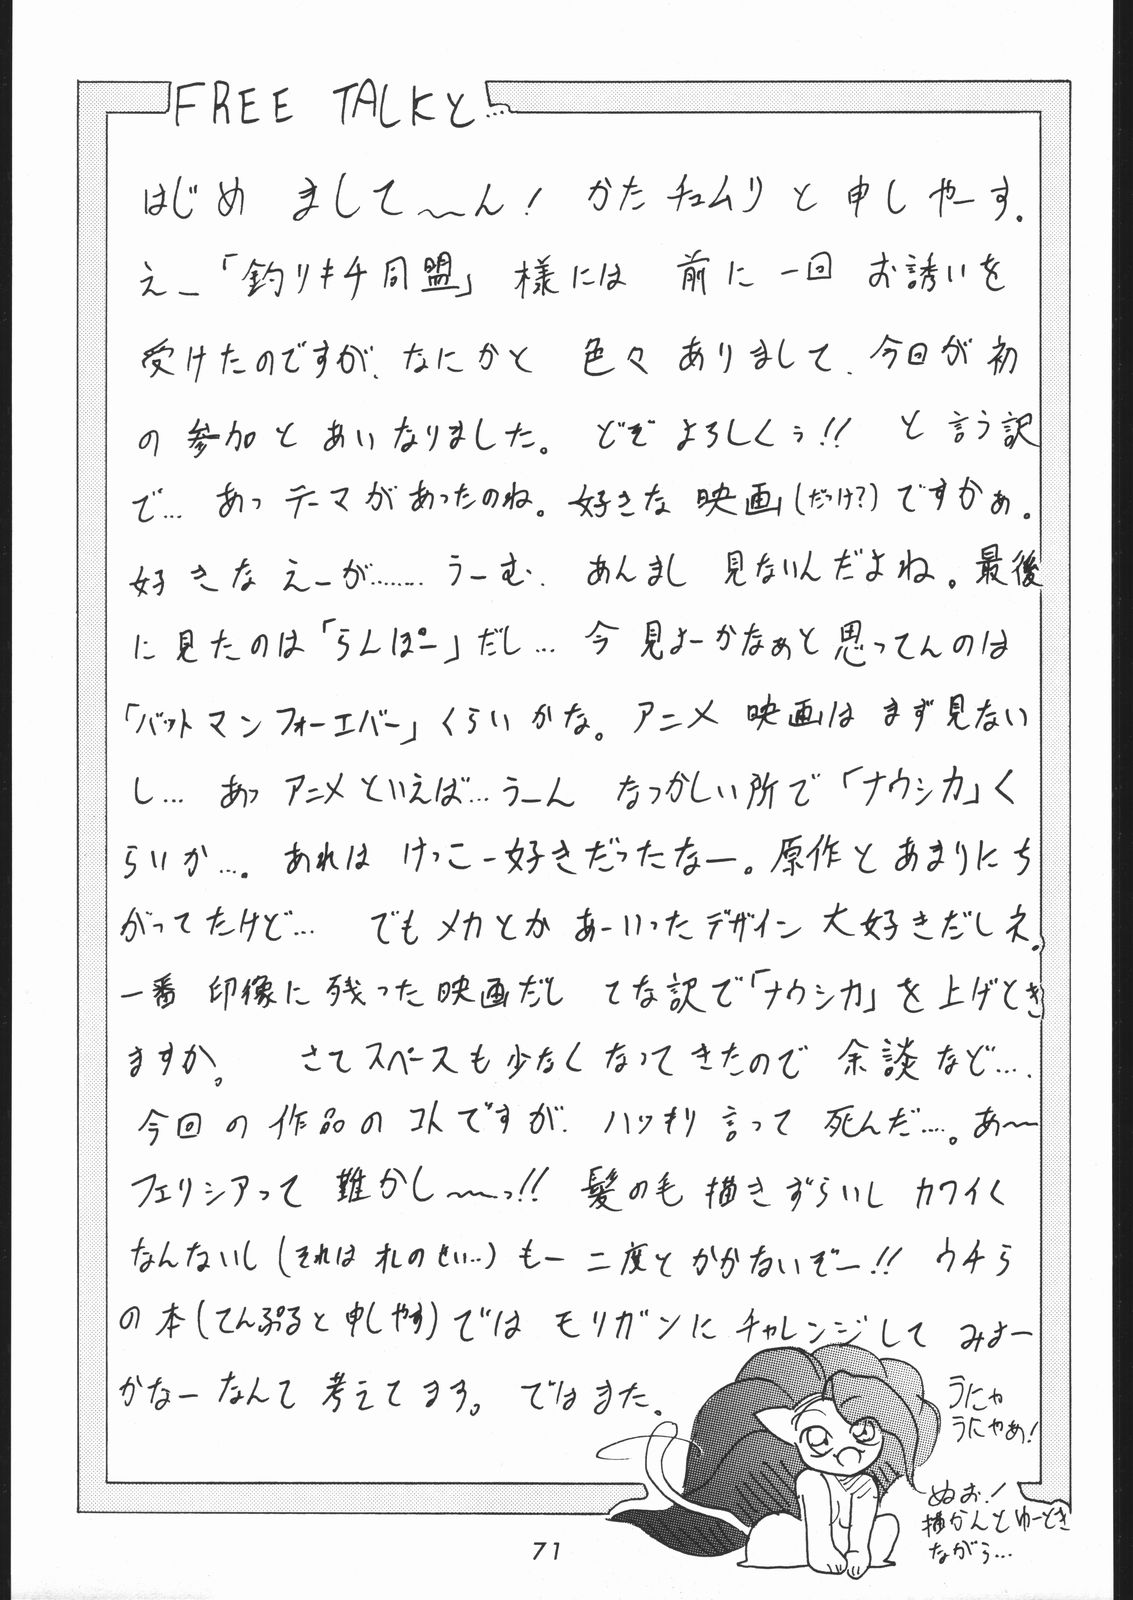 FREE TALKと…
はじめ まして〜ん! かたチュムリ と 申し やーす.
え_「釣りキチ同盟」様には 前に 一回 お誘いを
受けたのですが、なにかと 色々 ありまして、今回が初
の 参加と あいなりました。 どぞ よろしくぅ!! と 言う訳
で… あっ テーマがあったのね。好きな 映画(だっけ?)ですかぁ。
好きな えーが……… うーむ、 あんまし 見ないんだよね。最後
に見たのは「らんぽー」だし… 今 見よーかなぁと思ってんのは
「バットマンフォーエバー」くらいかな。アニメ 映画は まず見ない
し… あっ アニメといえば…うーん なつかしい所で「ナウシカ」く
らいか…. あれは けっこー好きだったなー。原作と あまりにち
がってたけど… でも メカとか あーいったデザイン 大好きだしネ。
一番 印像に残った映画だし てな訳で「ナウシカ」を上げとき
ますか。 さてスペースも少なくなってきたので 余談など….
今回の作品のコトですが、ハッキリ言って 死んだ…。あ〜〜
フェリシアって 難かし〜〜っ!! 髪の毛 描きずらいし カワイく
なんないし(それは オレのせい…)もー 二度とかかないぞー!! ウチら
の本(てんぷると申しやす)では モリガンにチャレンジして みよー
かなー なんて 考えてます。 ではまた.
うにゃ
うにゃあ!
ぬお!
描かんとゆーとき
ながら…
71